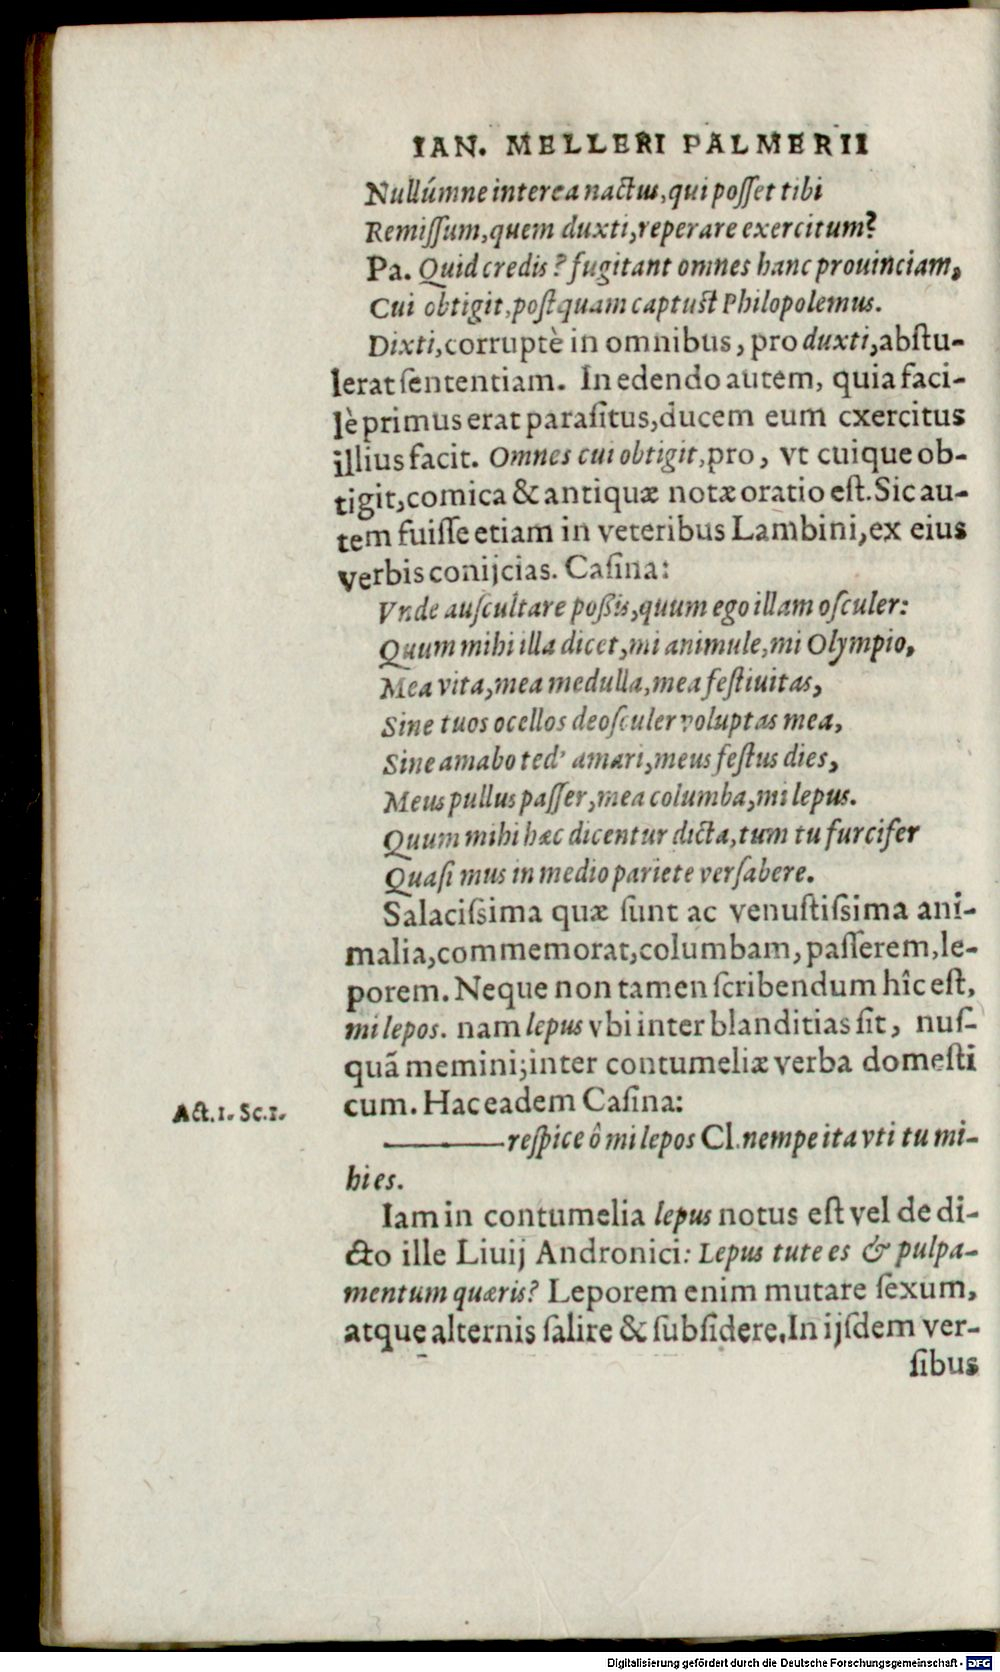 IAN. MELLERI PALMERII
Nullúmne interea nactus, qui posset tibi
Remissum, quem duxti, reperare exercitum?
Pa. Quid credis? fugitant omnes hanc prouinciam,
Cui obtigit, postquam captust Philopolemus.
Dixti, corruptè in omnibus, pro duxti, abstu-
lerat sententiam. In edendo autem, quia faci-
lè primus erat parasitus, ducem eum cxercitus
illius facit. Omnes cui obtigit, pro, vt cuique ob-
tigit, comica & antiquæ notæ oratio est. Sic au-
tem fuisse etiam in veteribus Lambini, ex eius
verbis conijcias. Casina:
Vnde auscultare possis, quum ego illam osculer:
Quum mihi illa dicet, mi animule, mi Olympio,
Mea vita, mea medulla, mea festiuitas,
Sine tuos ocellos deosculer voluptas mea,
Sine amabo ted' amari, meus festus dies,
Meus pullus passer, mea columba, mi lepus.
Quum mihi hæc dicentur dicta, tum tu furcifer
Quasi mus in medio pariete versabere.
Salacissima quæ sunt ac venustissima ani-
malia, commemorat, columbam, passerem, le-
porem. Neque non tamen scribendum hîc est,
mi lepos. nam lepus vbi inter blanditias sit, nus-
quã memini; inter contumeliæ verba domesti
cum. Hac eadem Casina:
Act. 1. Sc. 1.
———— respice ô mi lepos Cl. nempe ita vti tu mi-
hi es.
Iam in contumelia lepus notus est vel de di-
cto ille Liuij Andronici: Lepus tute es & pulpa-
mentum quæris? Leporem enim mutare sexum,
atque alternis salire & subsidere. In ijsdem ver-
sibus
Digitalisierung gefördert durch die Deutsche Forschungsgemeinschaft - DFG